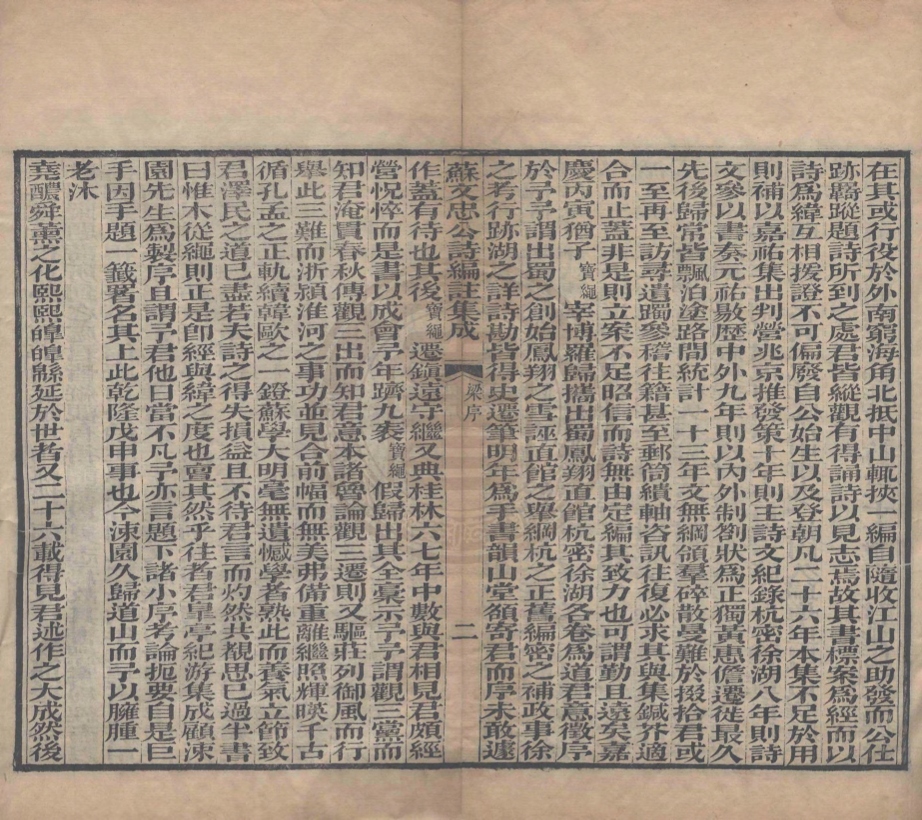 在其或行役於外南窮海角北抵中山輒挾一編自隨收江山之助發而公仕
跡羈蹤題詩所到之處君皆縱觀有得誦詩以見志焉故其書標案為經而以
詩為緯互相援證不可偏廢自公始生以及登朝凡二十六年本集不足於用
則補以嘉祐集出判營兆京推發策十年則主詩文紀錄杭密徐湖八年則詩
文參以書奏元祐敭歷中外九年則以內外制劄狀為正獨黃惠儋遷徙最久
先後歸常皆飄泊塗路間統計一十三年文無綱領羣碎散曼難於掇拾君或
一至再至訪尋遺躅參稽往籍甚至郵筒續軸咨訊往復必求其與集鍼芥適
合而止蓋非是則立案不足昭信而詩無由定編其致力也可謂勤且遠矣嘉
慶丙寅猶子寶繩宰博羅歸攜出蜀鳳翔直館杭密徐湖各卷為道君意徵序
於予予謂出蜀之創始鳳翔之雪誣直館之舉綱杭之正舊編密之補政事徐
之考行跡湖之詳詩勘皆得史遷筆明年為手書韻山堂額寄君而序未敢遽
蘇文忠公詩編註集成 梁序 二
作蓋有待也其後寶繩遷鎮遠守繼又典桂林六七年中數與君相見君頗經
營怳悴而是書以成會予年躋九袠寶繩假歸出其全稾示予予謂觀三黨而
知君淹貫春秋傳觀三出而知君意本諸魯論觀三遷則又驅莊列御風而行
舉此三難而浙潁淮河之事功並見合前幅而無美弗備重離繼照輝暎千古
循孔孟之正軌續韓歐之一鐙蘇學大明毫無遺憾學者熟此而養氣立節致
君澤民之道已盡若夫詩之得失損益且不待君言而灼然共覩思已過半書
曰惟木從繩則正是卽經與緯之度也亶其然乎往者君皐亭紀游集成顧涑
園先生為製序且謂予君他日當不凡予亦言題下諸小序考論扼要自是巨
手因手題一籤署名其上此乾隆戊申事也今涑園久歸道山而予以臃腫一
老沐
堯醲舜薰之化熙熙皥皥緜延於世者又二十六載得見君述作之大成然後